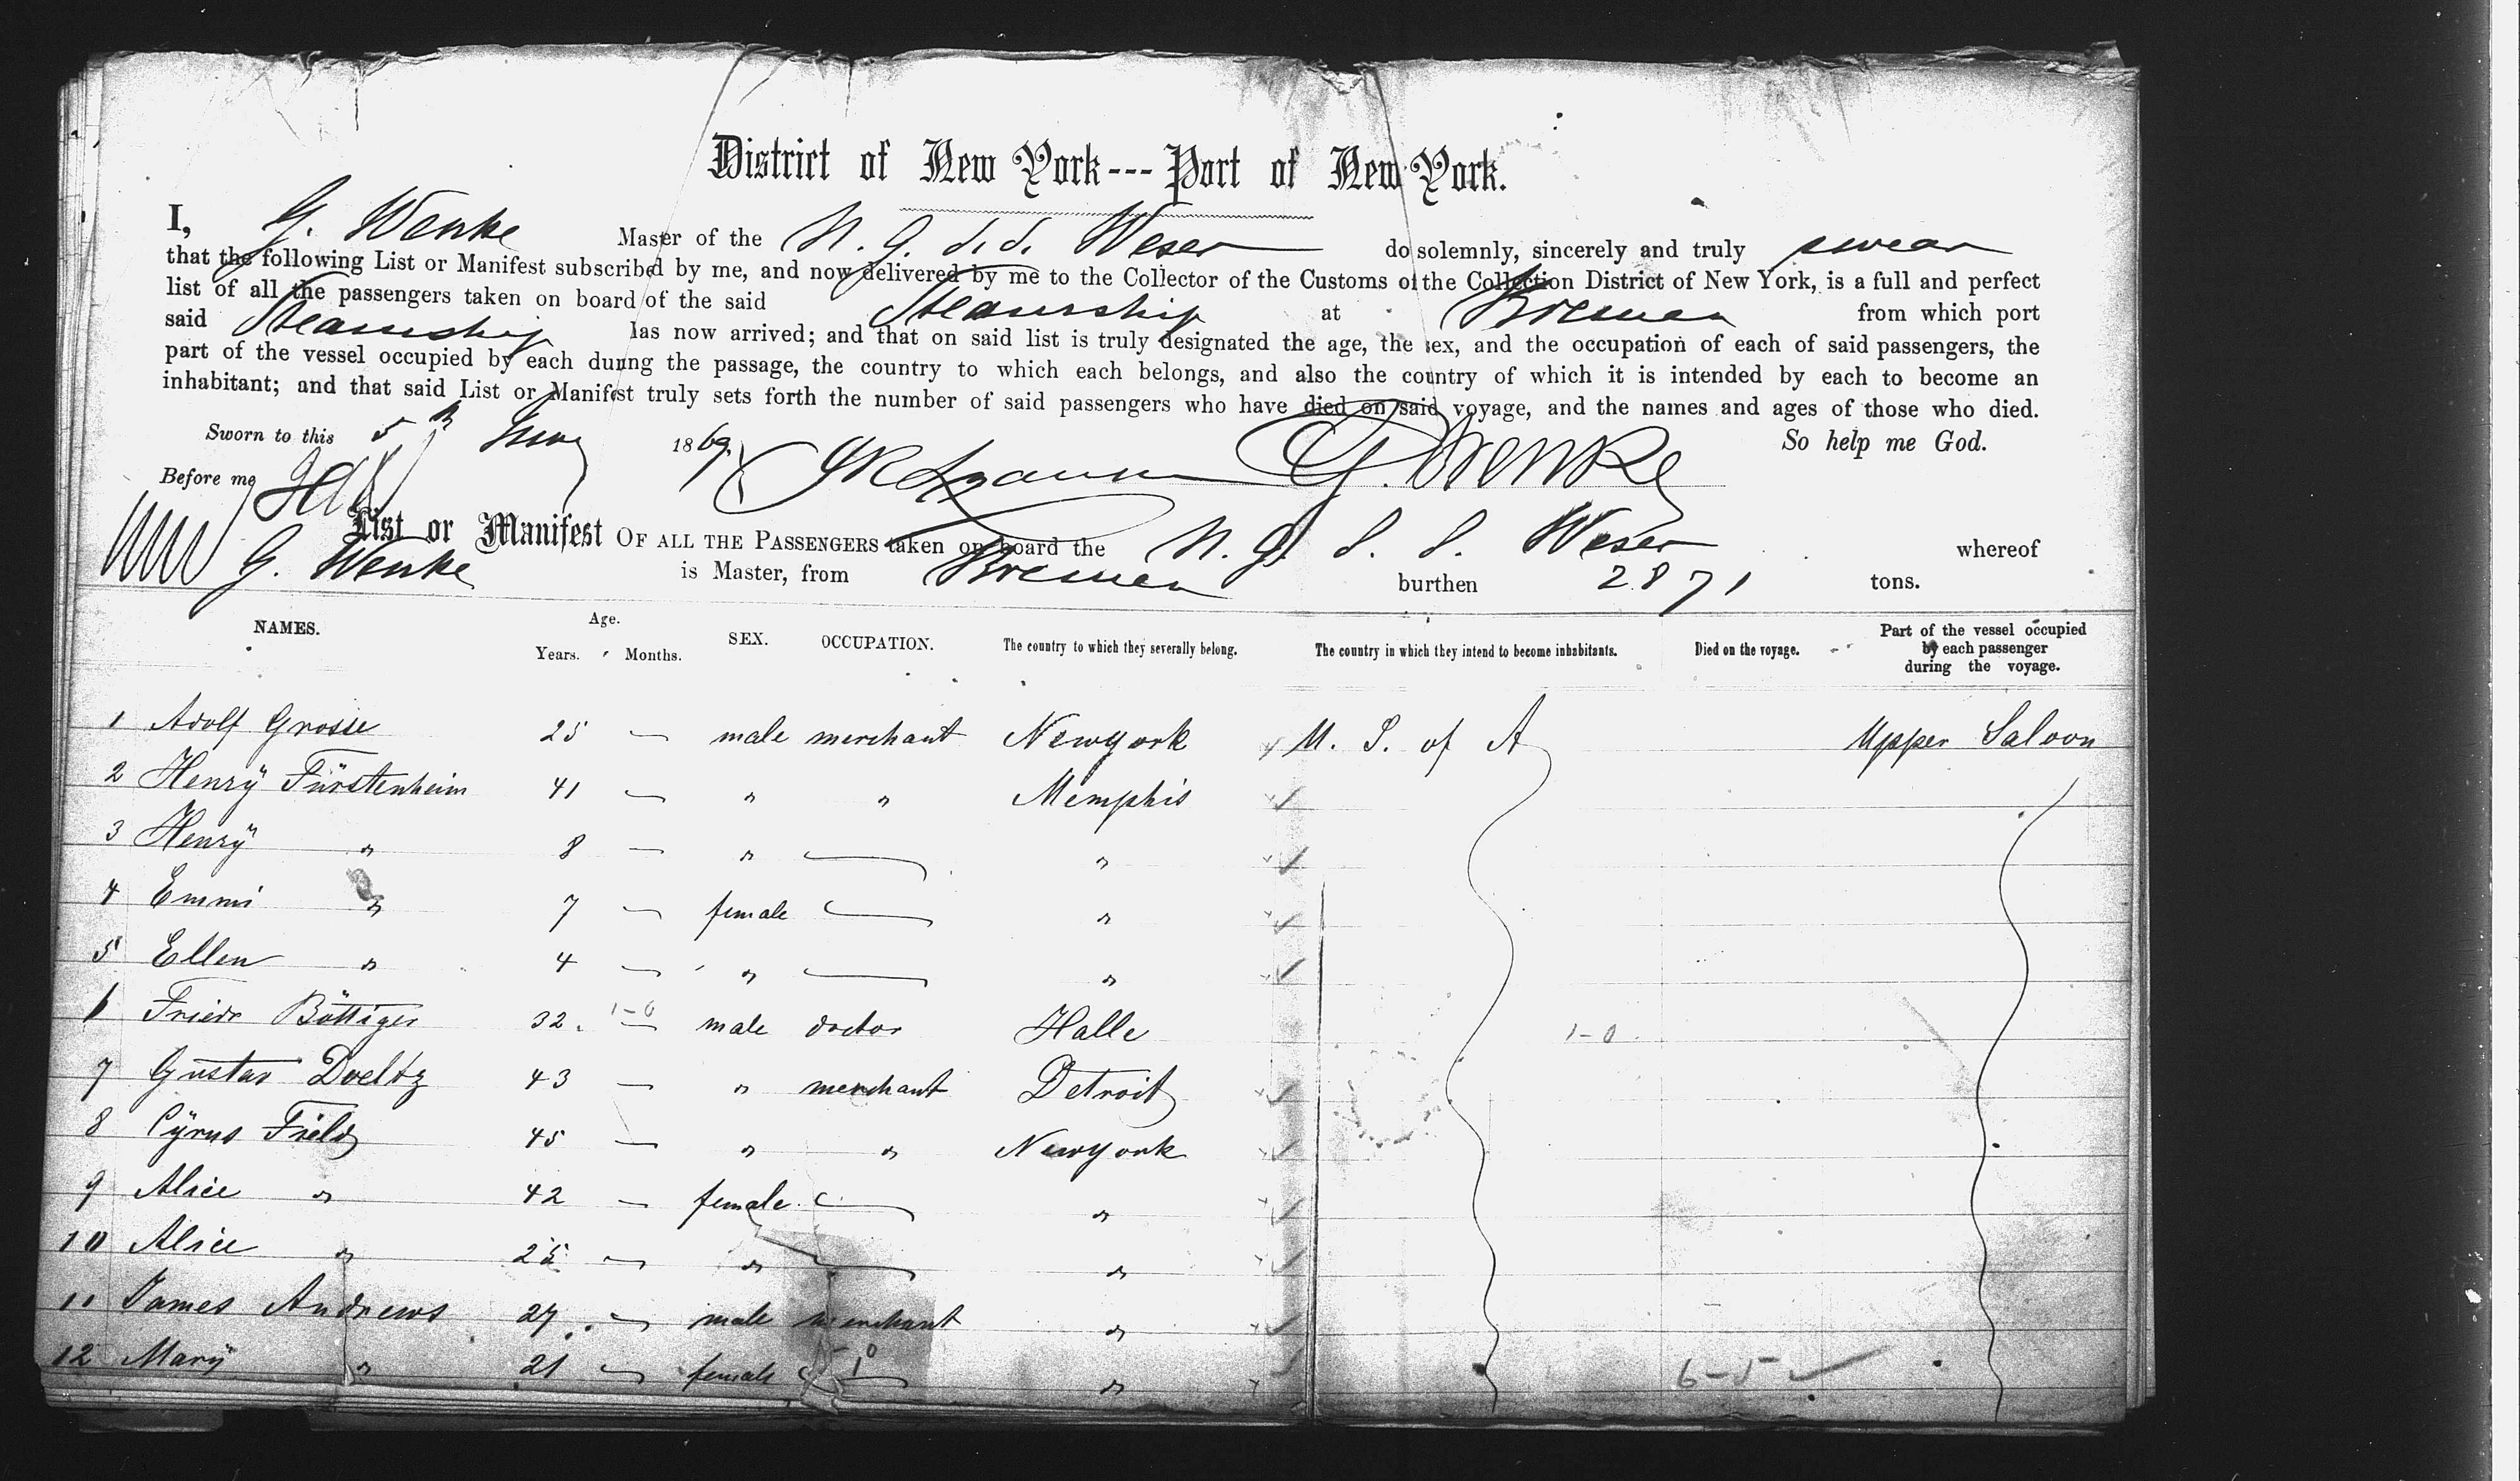 District of New York --- Port of New York.
I, G. Wenke Master of the N. G. S. S. Weser do solemnly, sincerely and truly swear
that the following List or Manifest subscribed by me, and now delivered by me to the Collector of the Customs of the Collection District of New York, is a full and perfect
list of all the passengers taken on board of the said Steamship at Bremen from which port
said Steamship has now arrived; and that on said list is truly designated the age, the sex, and the occupation of each of said passengers, the
part of the vessel occupied by each during the passage, the country to which each belongs, and also the country of which it is intended by each to become an
inhabitant; and that said List or Manifest truly sets forth the number of said passengers who have died on said voyage, and the names and ages of those who died.
Sworn to this 5th 1869. G. Wenke So help me God.
Before me
List or Manifest OF ALL THE PASSENGERS taken on board the N. G. S. S. Weser whereof
G. Wenke is Master, from Bremen burthen 2871 tons.
NAMES. Age. Years. Months. SEX. OCCUPATION. The country to which they severally belong. The country in which they intend to become inhabitants. Died on the voyage. Part of the vessel occupied by each passenger during the voyage.
1 Adolf Grosse 25 — male merchant Newyork U. S. of A Upper Saloon
2 Henrÿ Fürstenheim 41 — " " Memphis
3 Henrÿ " 8 — " — "
4 Emmi " 7 — female — "
5 Ellen " 4 — " — "
6 Friedr Böttiger 32. 1-0 — male doctor Halle 1-0
7 Gustav Doeltz 43 — " merchant Detroit
8 Cÿrus Field 45 — " " Newyork
9 Alice " 42 — female — "
10 Alice " 25 — " — "
11 James Andrews 27 — male merchant "
12 Marÿ " 21 — female — " 6-5